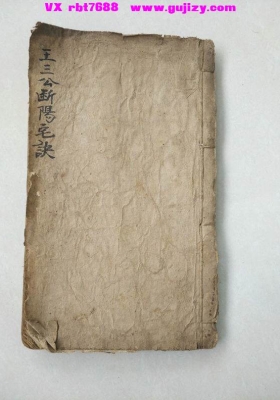 VX rbt7688 www.gujizy.com
王三公断陽宅訣